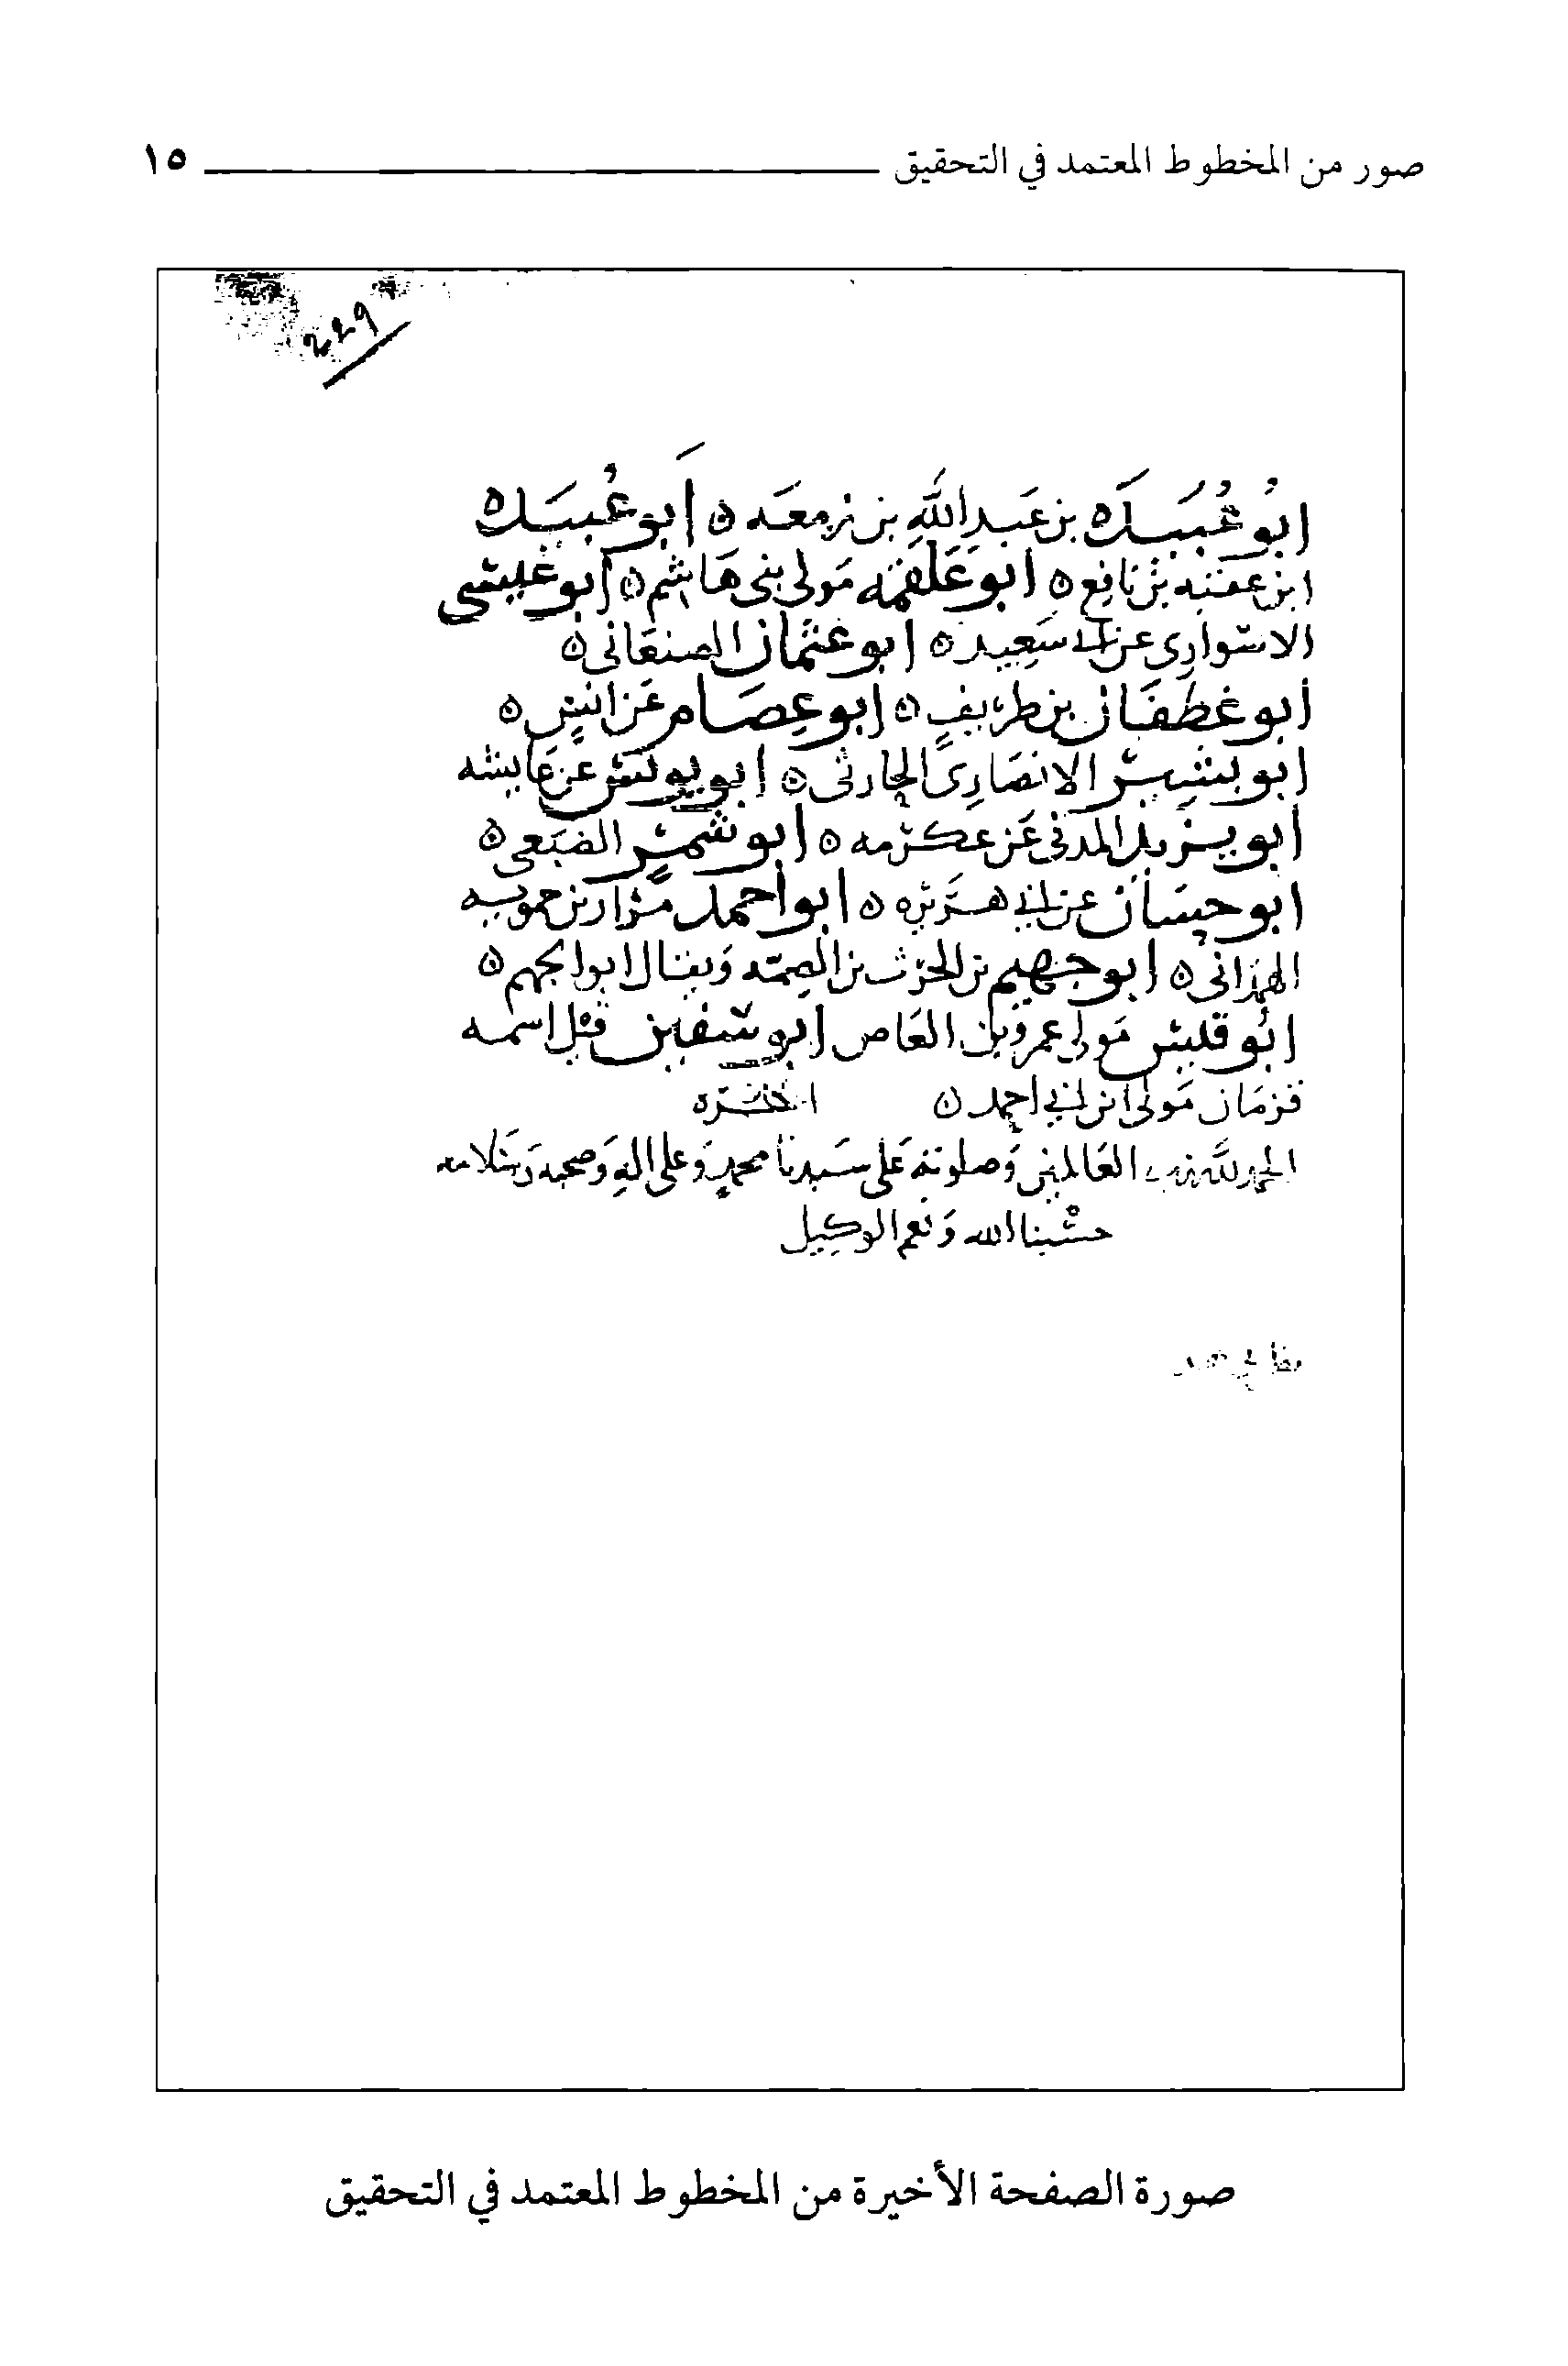 صور من المخطوط المعتمد في التحقيق ١٥
229
ابو عُبيده بن عبد الله بن زمعه ن ابو عُبيده
ابن عقبه بن نافع ن ابو علقمه مولى بني هاشم ن ابو عيسى
الاسواري عن ابي سعيد ن ابو عثمان الصنعاني ن
ابو غطفان بن طريف ن ابو عصام عن انس ن
ابو بشير الانصاري الحارثي ن ابو يونس عن عايشه
ابو يزيد المدني عن عكرمه ن ابو شمر الضبعي ن
ابو حسان عن ابي هريره ن ابو احمد مرار بن حمويه
الهمذاني ن ابو جهيم بن الحرث بن الصمه ويقال ابو الجهم ن
ابو قيس مولى عمرو بن العاص ابو سفين قيل اسمه
قزمان مولى ابن ابي احمد ن
الحمد لله رب العالمين وصلوته على سيدنا محمد وعلى اله وصحبه وسلامه
حسبنا الله ونعم الوكيل
صورة الصفحة الأخيرة من المخطوط المعتمد في التحقيق